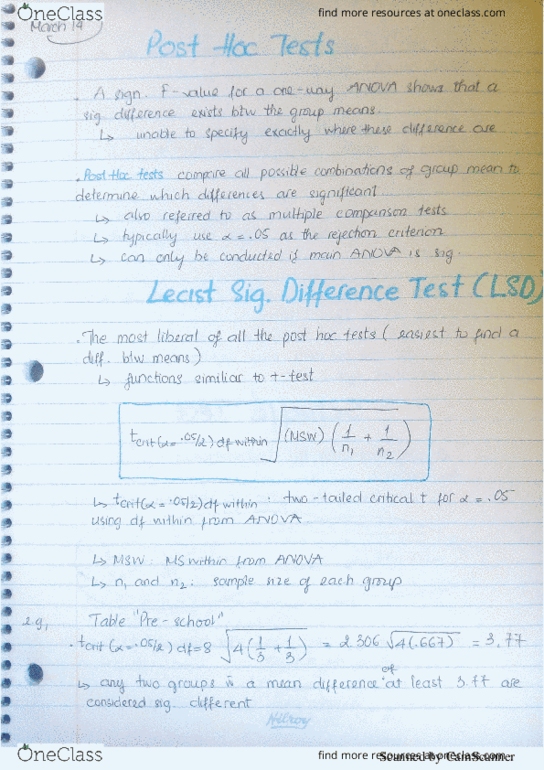 OneClass
find more resources at oneclass.com
March 19
Post Hoc Tests
. A sign. F-value for a one-way ANOVA shows that a
sig difference exists btw the group means.
↳ unable to specify exactly where these difference are
. Post Hoc tests compare all possible combinations of group mean to
determine which differences are significant
↳ also referred to as multiple comparison tests
↳ typically use α = .05 as the rejection criterion
↳ can only be conducted if main ANOVA is sig.
Least Sig. Difference Test (LSD)
. The most liberal of all the post hoc tests ( easiest to find a
diff. btw means )
↳ functions similiar to t-test
tcrit(α = .05/2) df within √(MSW) (1/n₁ + 1/n₂)
↳ tcrit(α = .05/2) df within : two-tailed critical t for α = .05
using df within from ANOVA
↳ MSW : MS within from ANOVA
↳ n₁ and n₂ : sample size of each group
e.g, Table "Pre-school"
. tcrit (α = .05/2) df = 8 √4(1/3 + 1/3) = 2.306 √4(.667) = 3.77
↳ any two groups w a mean difference of at least 3.77 are
considered sig. different
Hilroy
OneClass
find more resources at oneclass.com
Scanned by CamScanner